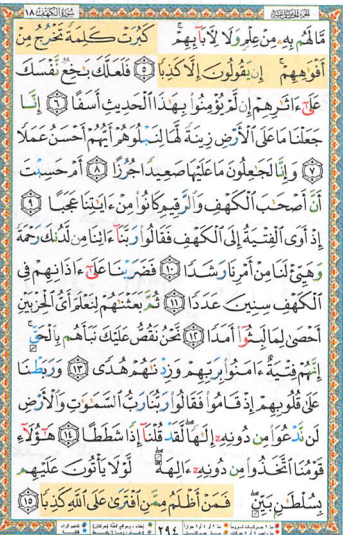 سورة الكهف ١٨
مَّا لَهُم بِهِۦ مِنْ عِلْمٍ وَلَا لِـَٔابَآئِهِمْ ۚ كَبُرَتْ كَلِمَةً تَخْرُجُ مِنْ
أَفْوَٰهِهِمْ ۚ إِن يَقُولُونَ إِلَّا كَذِبًا ٥ فَلَعَلَّكَ بَٰخِعٌ نَّفْسَكَ
عَلَىٰٓ ءَاثَٰرِهِمْ إِن لَّمْ يُؤْمِنُوا۟ بِهَٰذَا ٱلْحَدِيثِ أَسَفًا ٦ إِنَّا
جَعَلْنَا مَا عَلَى ٱلْأَرْضِ زِينَةً لَّهَا لِنَبْلُوَهُمْ أَيُّهُمْ أَحْسَنُ عَمَلًا
٧ وَإِنَّا لَجَٰعِلُونَ مَا عَلَيْهَا صَعِيدًا جُرُزًا ٨ أَمْ حَسِبْتَ
أَنَّ أَصْحَٰبَ ٱلْكَهْفِ وَٱلرَّقِيمِ كَانُوا۟ مِنْ ءَايَٰتِنَا عَجَبًا ٩
إِذْ أَوَى ٱلْفِتْيَةُ إِلَى ٱلْكَهْفِ فَقَالُوا۟ رَبَّنَآ ءَاتِنَا مِن لَّدُنكَ رَحْمَةً
وَهَيِّئْ لَنَا مِنْ أَمْرِنَا رَشَدًا ١٠ فَضَرَبْنَا عَلَىٰٓ ءَاذَانِهِمْ فِى
ٱلْكَهْفِ سِنِينَ عَدَدًا ١١ ثُمَّ بَعَثْنَٰهُمْ لِنَعْلَمَ أَىُّ ٱلْحِزْبَيْنِ
أَحْصَىٰ لِمَا لَبِثُوٓا۟ أَمَدًا ١٢ نَّحْنُ نَقُصُّ عَلَيْكَ نَبَأَهُم بِٱلْحَقِّ ۚ
إِنَّهُمْ فِتْيَةٌ ءَامَنُوا۟ بِرَبِّهِمْ وَزِدْنَٰهُمْ هُدًى ١٣ وَرَبَطْنَا
عَلَىٰ قُلُوبِهِمْ إِذْ قَامُوا۟ فَقَالُوا۟ رَبُّنَا رَبُّ ٱلسَّمَٰوَٰتِ وَٱلْأَرْضِ
لَن نَّدْعُوَا۟ مِن دُونِهِۦٓ إِلَٰهًا ۖ لَّقَدْ قُلْنَآ إِذًا شَطَطًا ١٤ هَٰٓؤُلَآءِ
قَوْمُنَا ٱتَّخَذُوا۟ مِن دُونِهِۦٓ ءَالِهَةً ۖ لَّوْلَا يَأْتُونَ عَلَيْهِم
بِسُلْطَٰنٍۭ بَيِّنٍ ۖ فَمَنْ أَظْلَمُ مِمَّنِ ٱفْتَرَىٰ عَلَى ٱللَّهِ كَذِبًا ١٥
٢٩٤